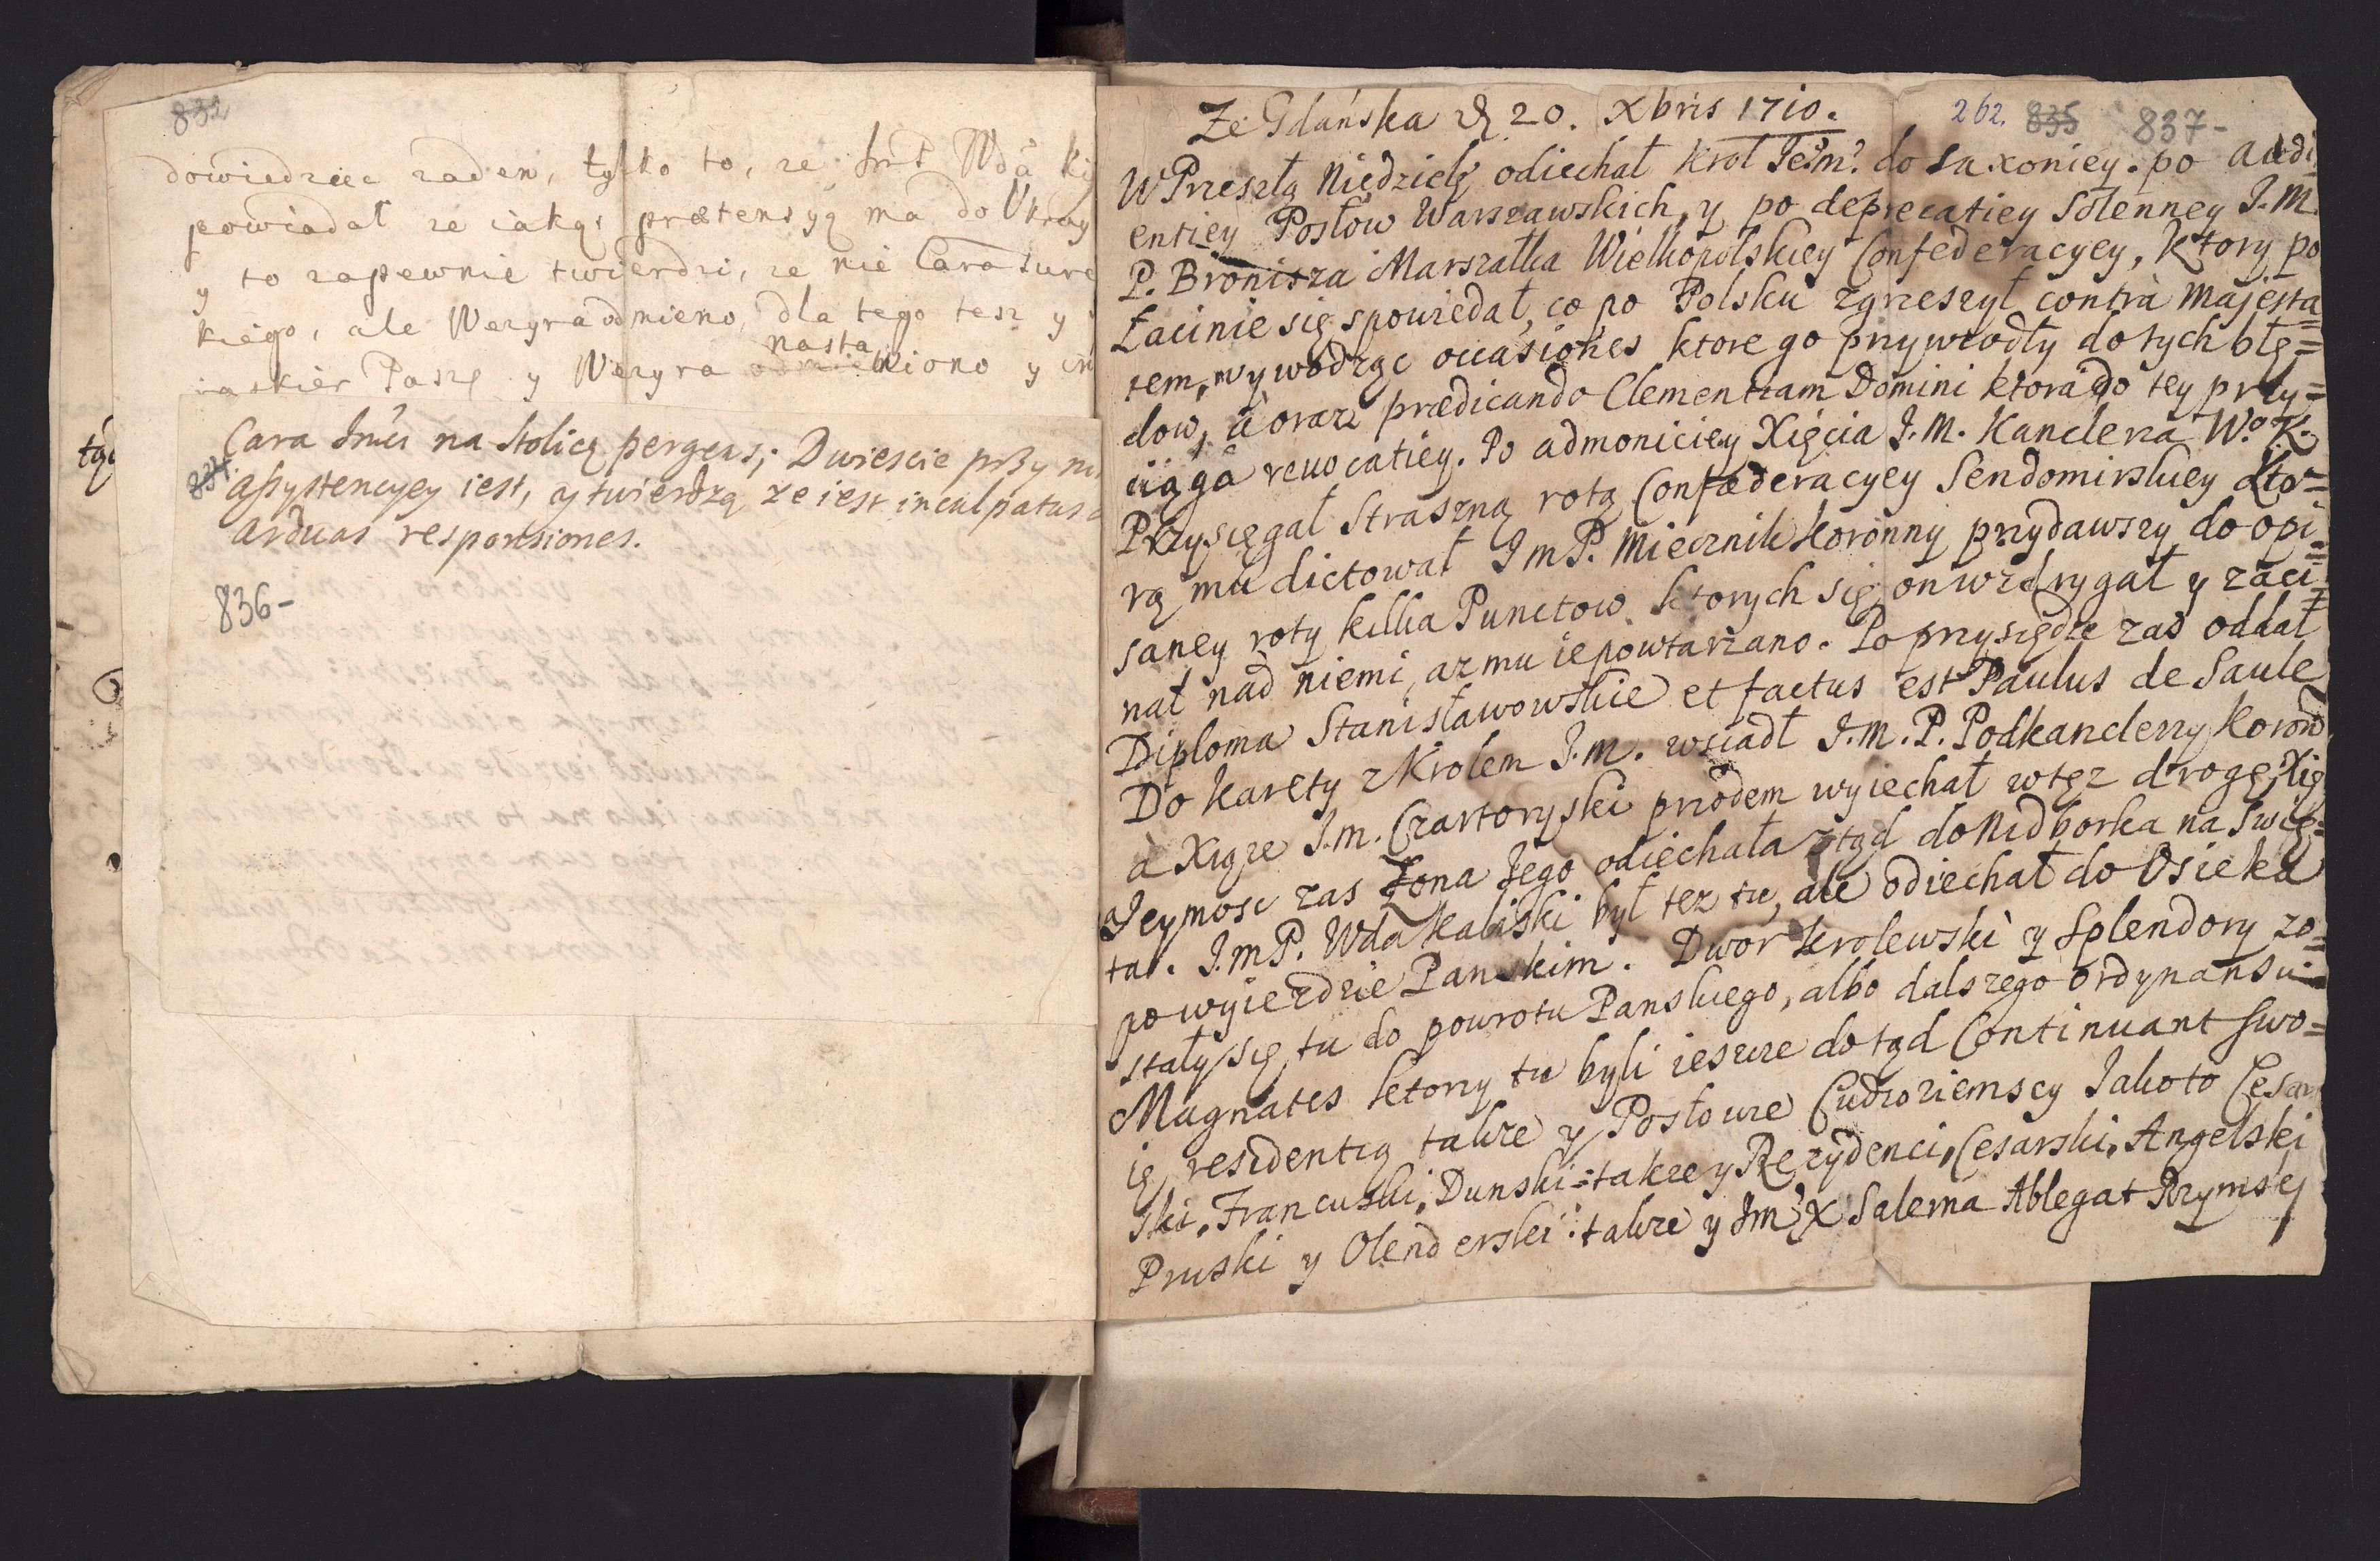 832
dowiedziec zaden, tylko to, ze Jmć Wda Ki
powiadał ze iakąs prætensyą ma do Ukray
y to zapewnie twierdzi, ze nie Cara Ture
kiego, ale Wezyra odmieno, dla tego tesz y
raskier Paszę y Wezyra nastawiono y in
Cara Jmsci na stolicę pergens; Dwiescie przy ni
834
assystencyey iest, y twierdzą ze iest inculpatus
arduas responsiones.
836-
Ze Gdańska d 20. Xbris 1710.
262. 835 837-
W Przeszłą Niedzielę odiechał Krol Je°m° do Saxoniey. po Audi
entiey Posłow Warszawskich, y po deprecatiey Solenney J.M.
P. Bronisza Marszałka Wielkopolskiey Confederacyey, ktory po
Łacinie się spowiedał, co po Polsku zgrzeszył contrà majesta=
tem, wywodząc occasiones ktore go przywiodły do tych błę=
dow, a oraz prædicando Clementiam Domini ktora go do tey przy=
ciąga reuocatiey. Po admoniciey Xięcia J.M. Kanclerza W.° K.
Przysięgał Straszną rotą Confæderacyey Sendomirskiey kto=
rą mu dictował JmP. Miecznik Koronny przydawszy do opi=
saney roty kilka Punctow ktorych się on wzdrygał y zaci=
nał nad niemi, az mu ie powtarzano. Po przysiędze zas oddał
Diploma Stanisławowskie et factus est Paulus de Saule
Do karety z Krolem J.M. wsiadł J.M.P. Podkanclerzy Koron
a Xiąze J.m. Czartoryski przodem wyiechał w tęz drogę, Xię
Jeymosc zas Zona Jego odiechała ztąd do Nidborka na Swię=
ta. J.mP. Wda Kaliski był tez tu, ale odiechał do Osieka
po wyiezdzie Panskim. Dwor Krolewski y Splendory zo=
stały się tu do powrotu Panskiego, albo dalszego ordynansu
Magnates ktorzy tu byli ieszcze dotąd Continuant swo=
ię residentią takze y Posłowie Cudzoziemscy Jako to Cesar
ski, Francuski, Dunski takze y Rezydenci, Cesarski, Angelski
Pruski y Olenderski: takze y Jm X Salerna Ablegat Rzymsky